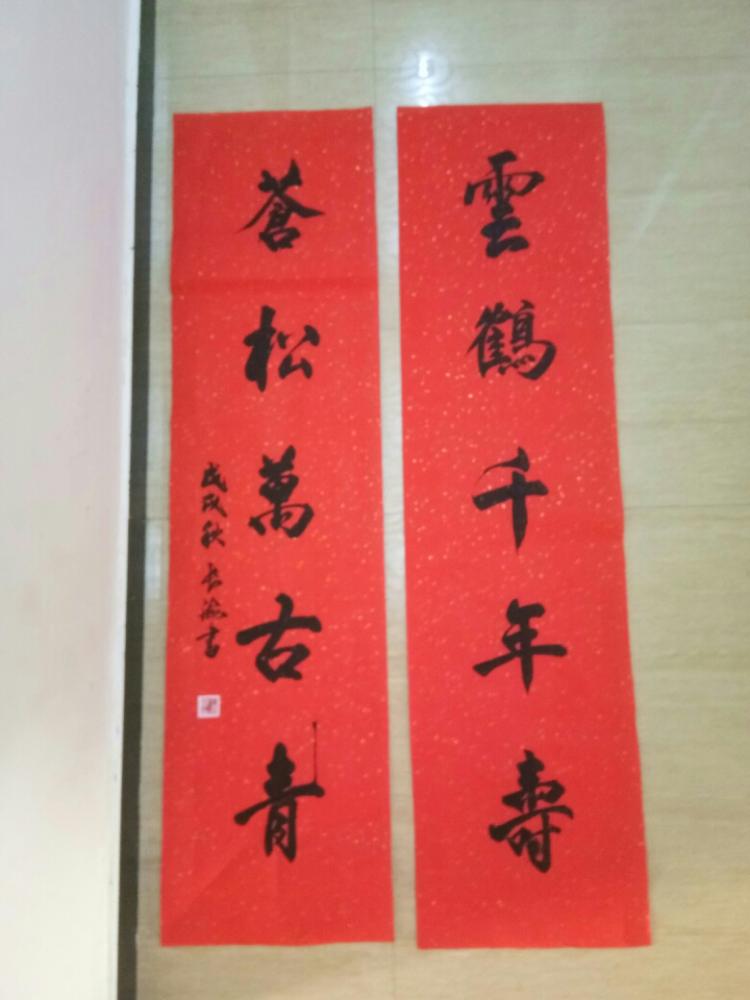 雲鶴千年壽
蒼松萬古青
戊戌秋 書